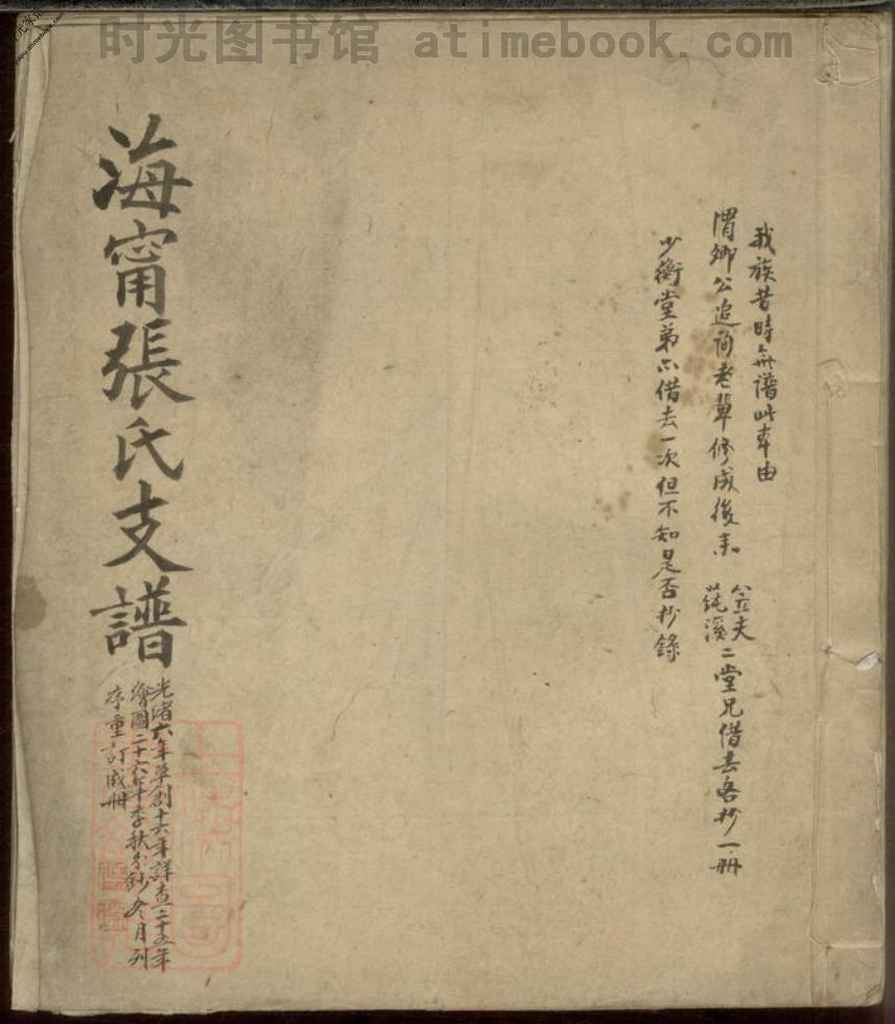 时光图书馆 atimebook.com
我族昔時無譜此本由
渭卿公追詢老輩修成後來 笠夫 蒓溪 二堂兄借去各抄一册
少衡堂弟亦借去一次但不知是否抄錄
海甯張氏支譜
光緒六年草創十六年詳查二十五年
繪圖二十六年季秋分鈔冬月列
序重訂成册